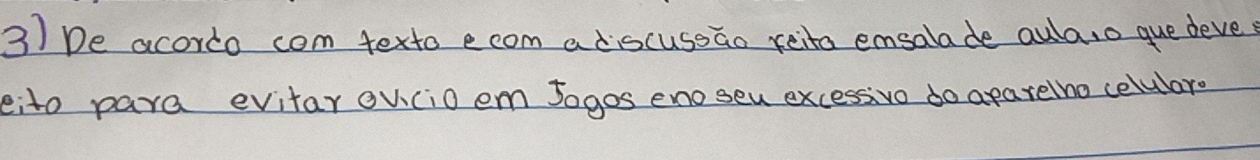 3) De acordo com texto e com a discussão feita em sala de aula, o que deve s
eito para evitar o vicio em Jogos e no seu excessivo do aparelho celular.